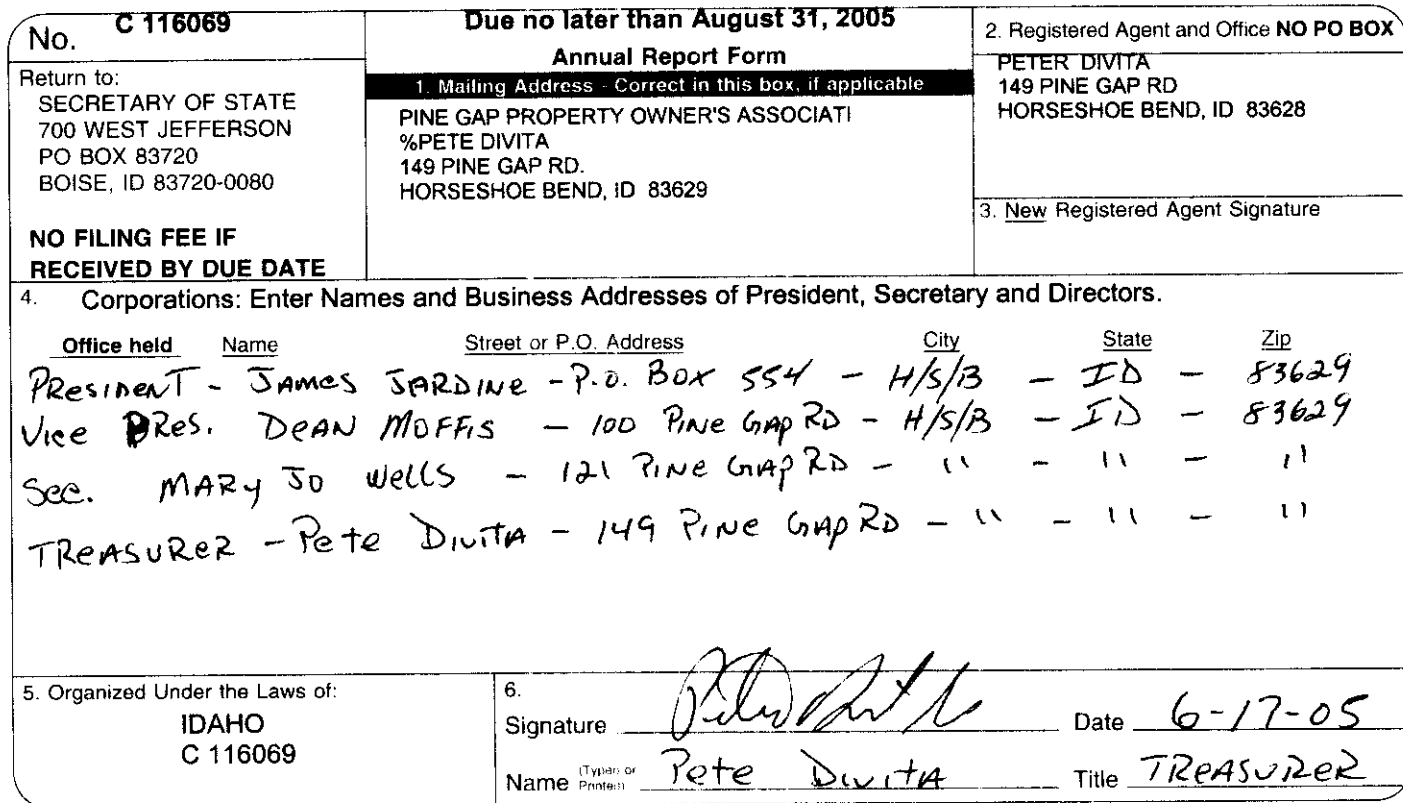 No. C 116069
Return to:
SECRETARY OF STATE
700 WEST JEFFERSON
PO BOX 83720
BOISE, ID 83720-0080
NO FILING FEE IF
RECEIVED BY DUE DATE
Due no later than August 31, 2005
Annual Report Form
1. Mailing Address - Correct in this box, if applicable
PINE GAP PROPERTY OWNER'S ASSOCIATI
%PETE DIVITA
149 PINE GAP RD.
HORSESHOE BEND, ID 83629
2. Registered Agent and Office NO PO BOX
PETER DIVITA
149 PINE GAP RD
HORSESHOE BEND, ID 83628
3. New Registered Agent Signature
4. Corporations: Enter Names and Business Addresses of President, Secretary and Directors.
Office held Name Street or P.O. Address City State Zip
PResident - JAMes JARDINe - P.O. BOX 554 - H/S/B - ID - 83629
Vice PRes. DeAN MOFFis - 100 PiNe GAp RD - H/S/B - ID - 83629
Sec. MARy JO WellS - 121 PiNe GAp RD - " - " - "
TReASUReR - Pete DiviTA - 149 PiNe GAp RD - " - " - "
5. Organized Under the Laws of:
IDAHO
C 116069
6.
Signature Date 6-17-05
Name (Typed or Printed) Pete DivitA Title TReASUReR